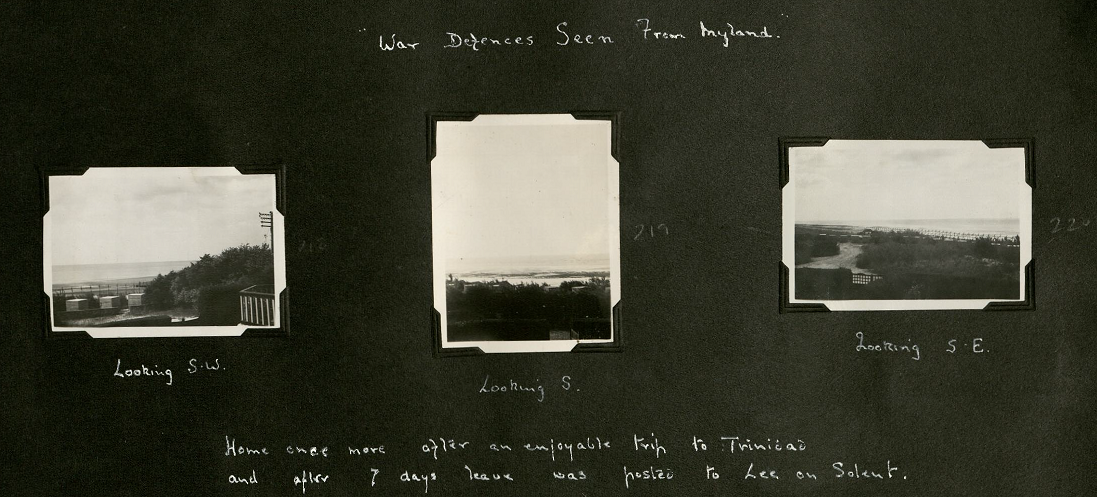 "War Defences Seen From Myland."
218
219
220
Looking S.W.
Looking S.
Looking S.E.
Home once more after an enjoyable trip to Trinidad
and after 7 days leave was posted to Lee on Solent.